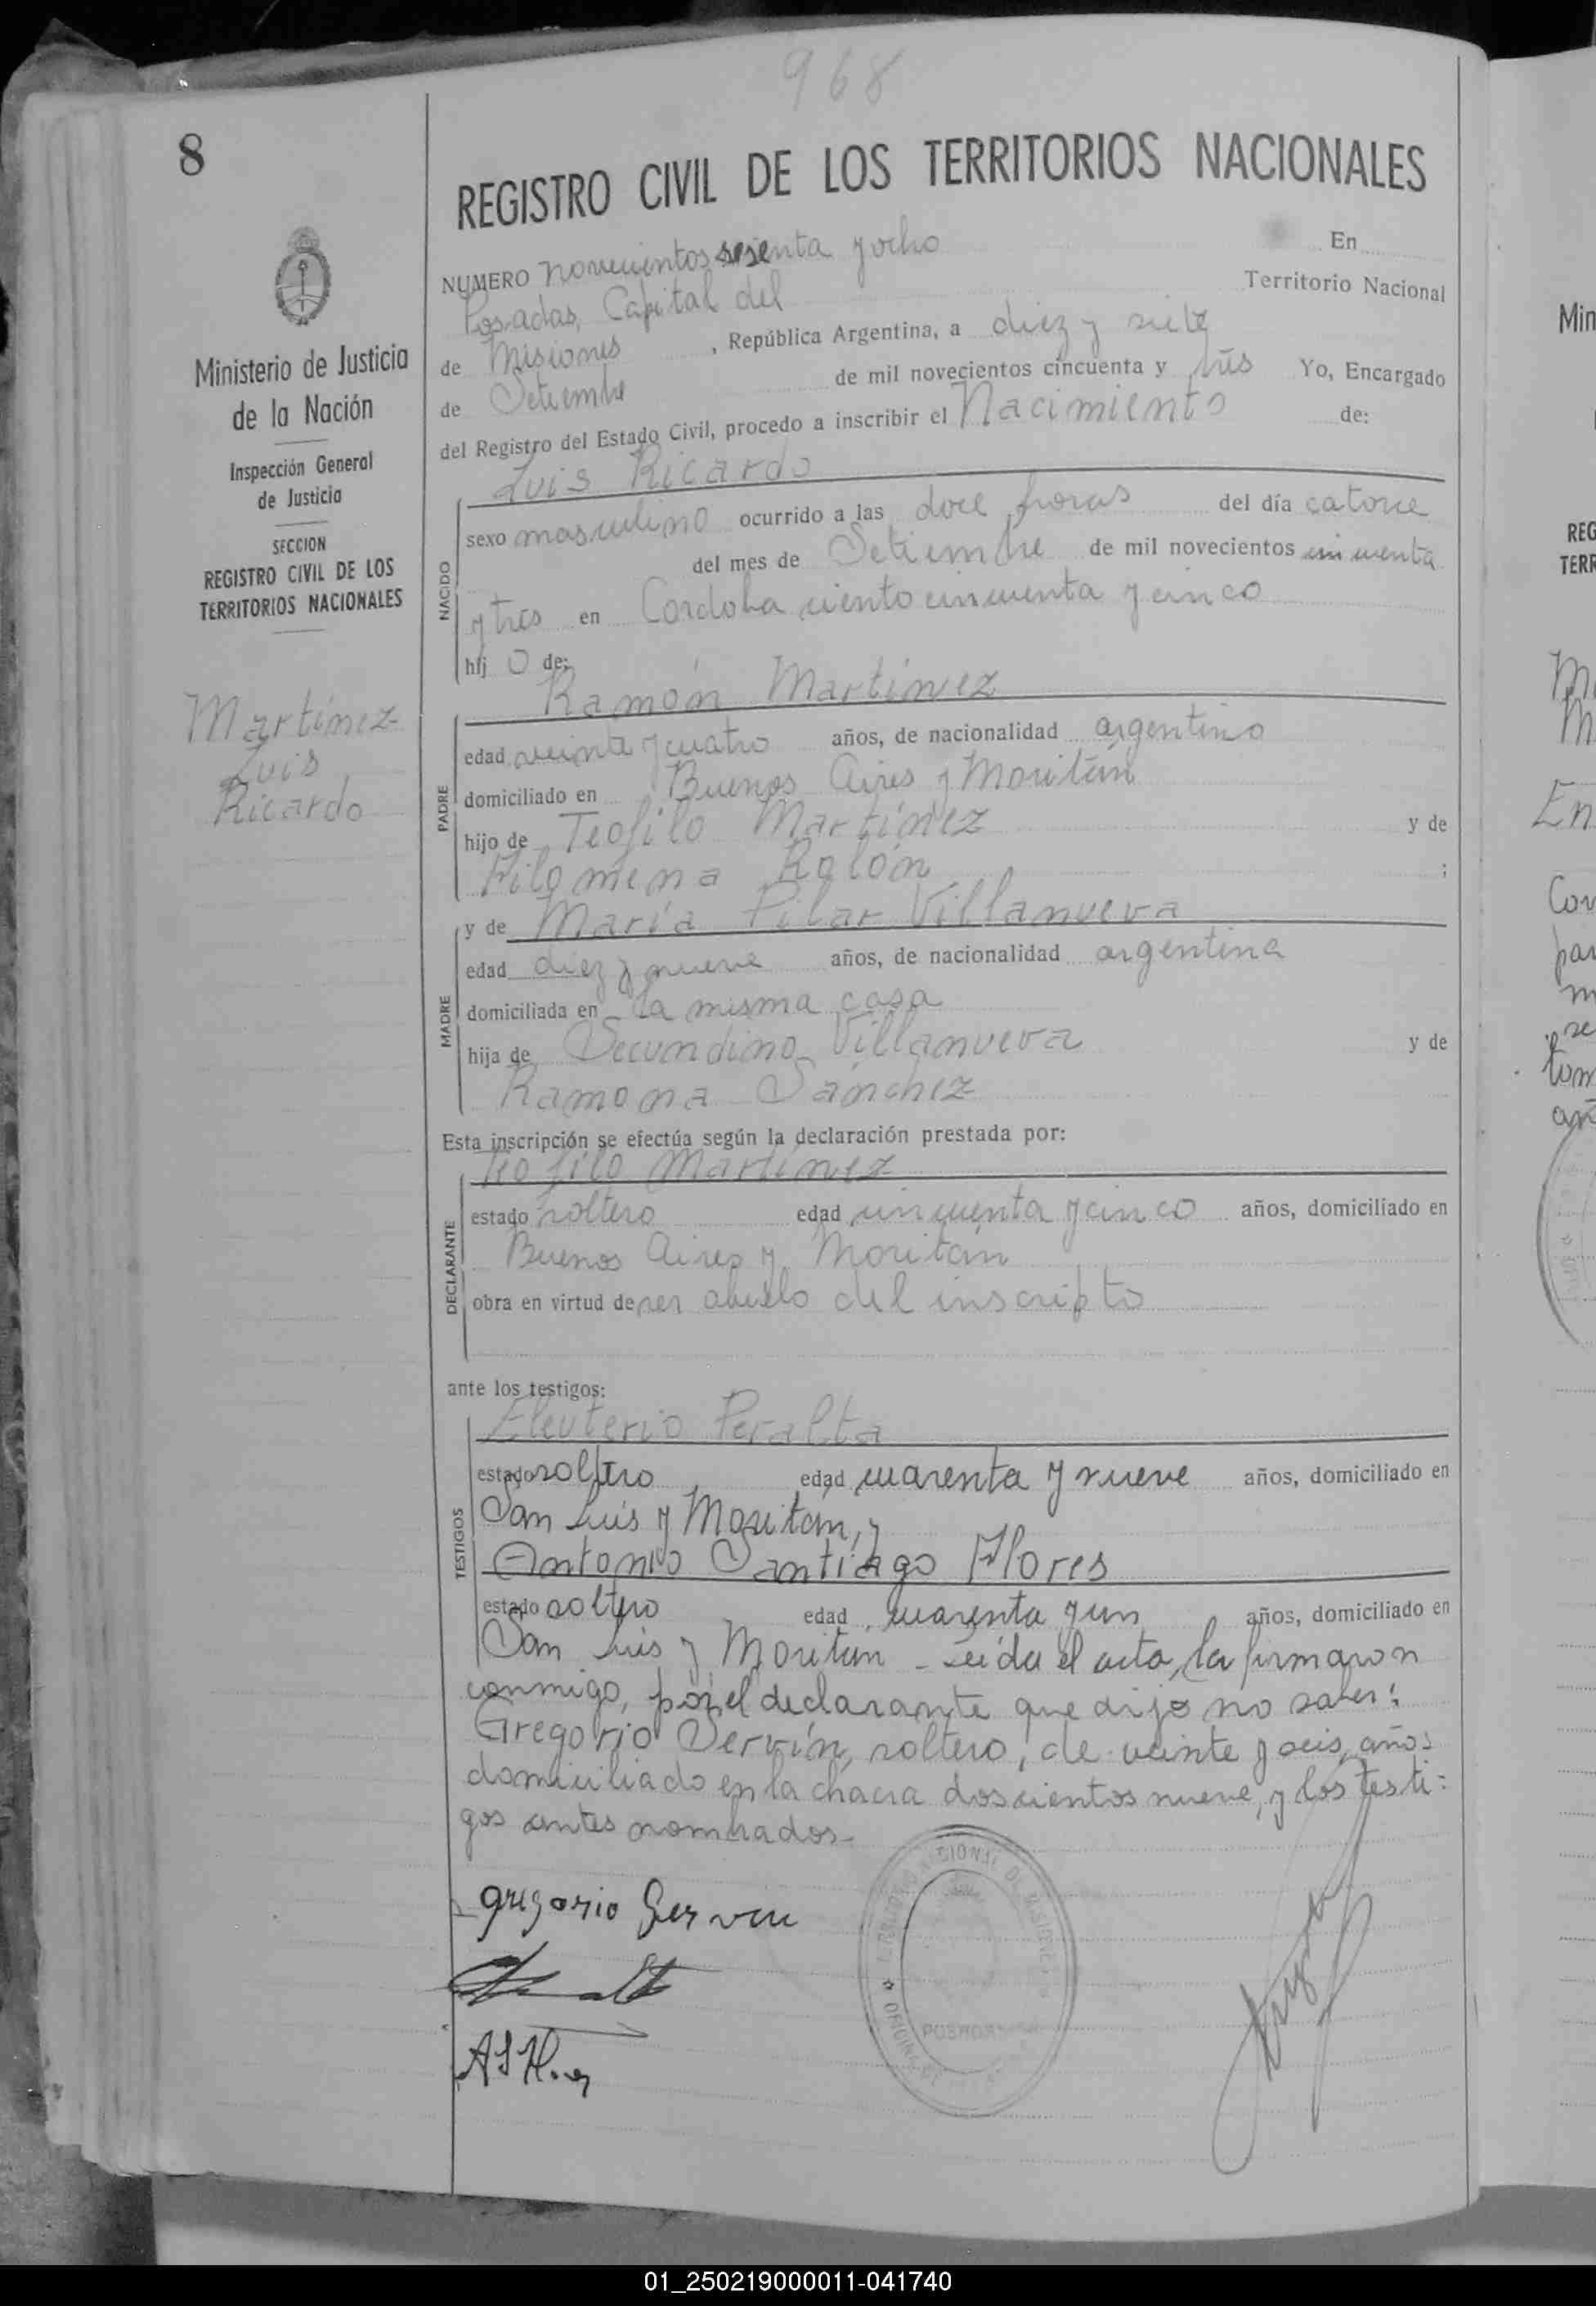 968
8
REGISTRO CIVIL DE LOS TERRITORIOS NACIONALES
NUMERO novecientos sesenta y ocho En
Posadas, Capital del Territorio Nacional
de Misiones, República Argentina, a diez y siete
de Setiembre de mil novecientos cincuenta y trés Yo, Encargado
del Registro del Estado Civil, procedo a inscribir el Nacimiento de:
Ministerio de Justicia
de la Nación
Inspección General
de Justicia
SECCION
REGISTRO CIVIL DE LOS
TERRITORIOS NACIONALES
Martínez
Luis
Ricardo
Luis Ricardo
NACIDO
sexo masculino ocurrido a las doce horas del día catorce
del mes de Setiembre de mil novecientos cincuenta
y tres en Cordoba ciento cincuenta y cinco
hij o de:
Ramón Martínez
PADRE
edad veinte y cuatro años, de nacionalidad argentino
domiciliado en Buenos Aires y Moritán
hijo de Teofilo Martínez y de
Filomena Rolón ;
y de María Pilar Villanueva
MADRE
edad diez y nueve años, de nacionalidad argentina
domiciliada en la misma casa
hija de Secundino Villanueva y de
Ramona Sánchez
Esta inscripción se efectúa según la declaración prestada por:
Teofilo Martínez
DECLARANTE
estado soltero edad cincuenta y cinco años, domiciliado en
Buenos Aires y Moritán
obra en virtud de ser abuelo del inscripto
ante los testigos:
Eleuterio Peralta
TESTIGOS
estado soltero edad cuarenta y nueve años, domiciliado en
San Luis y Moritán, y
Antonio Santiago Flores
estado soltero edad cuarenta y un años, domiciliado en
San Luis y Moritan - Leída el acta, la firmaron
conmigo, por el declarante que dijo no saber:
Gregorio Servín, soltero, de veinte y seis años
domiciliado en la chacra doscientos nueve, y los testi=
gos antes nombrados-
gregorio Servin
POSADAS
01_250219000011-041740